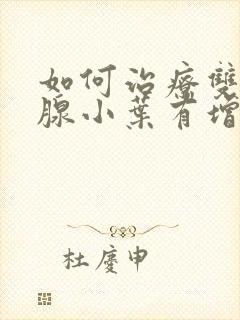 如何治療雙
腺小葉有增
杜慶申